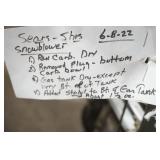 Sears - 5hrs 6-8-22
Snowblower
1) Ran Carb. Dry
2) Removed Plug - bottom
Carb bowl
3) Gas tank Dry - except
very Bt. of Tank
4) Added Stabil to Bt. of Gas Tank
About 1/2 oz.